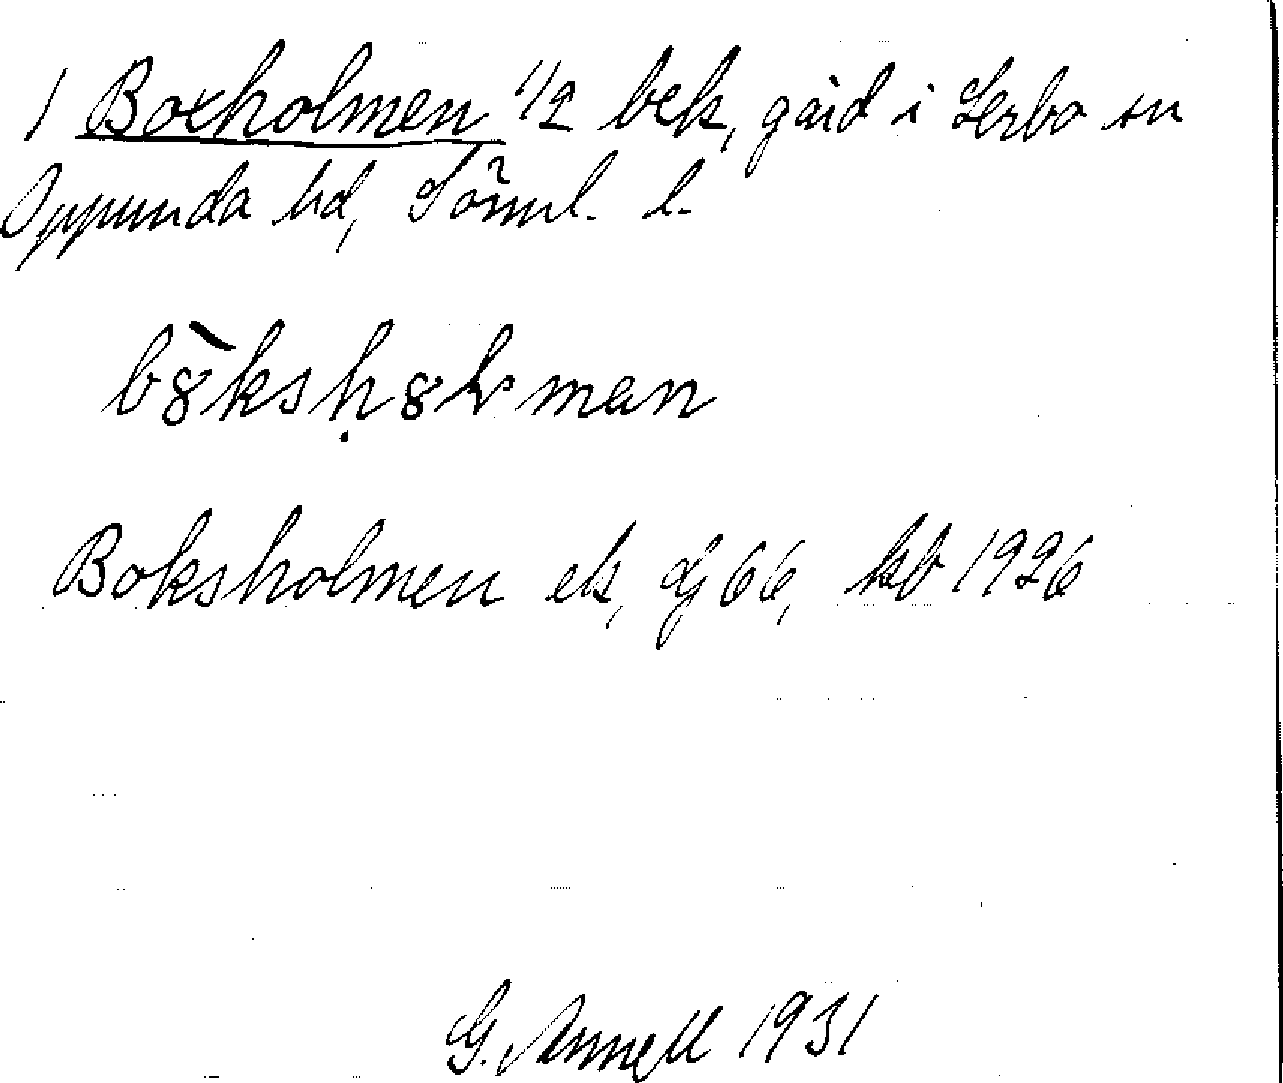 1 Boxholmen 1/2 bek, gård i Lerbo sn
Oppunda hd, Sörml. l.
bȣ̀ksḥȣlman
Boksholmen ek, dj 66, kb 1926
G. Annell 1931